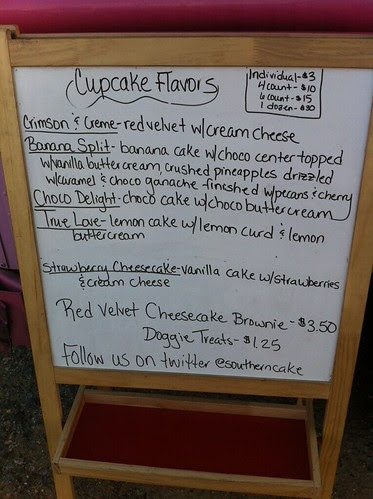 Cupcake Flavors
Individual-$3
4 count-$10
6 count-$15
1 dozen-$30
Crimson & Creme-red velvet w/cream cheese
Banana Split-banana cake w/choco center-topped
w/vanilla buttercream, crushed pineapples drizzled
w/caramel & choco ganache-fineshed w/pecans & cherry
Choco Delight-choco cake w/choco buttercream
True Love-lemon cake w/lemon curd & lemon
buttercream
Strawberry Cheesecake-vanilla cake w/strawberries
& cream cheese
Red Velvet Cheesecake Brownie-$3.50
Doggie Treats-$1.25
Follow us on twitter @southerncake